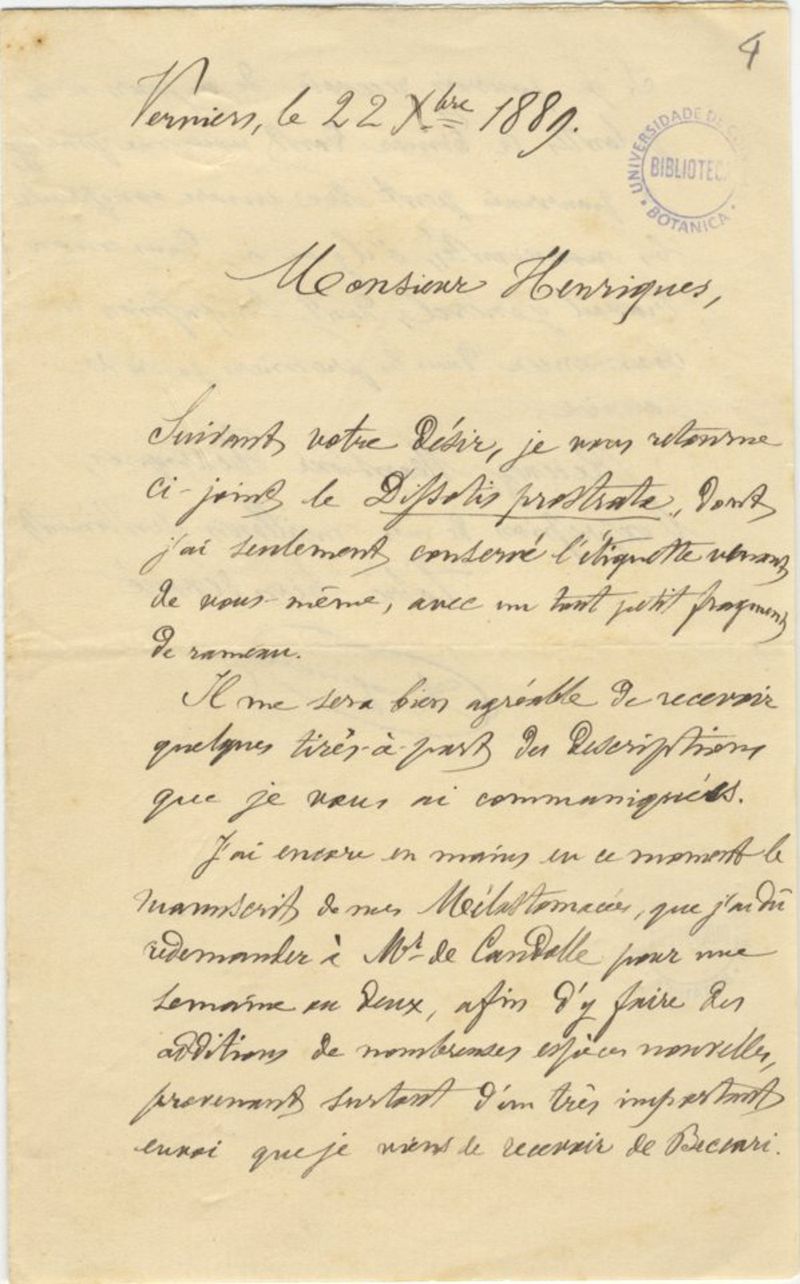 4
Verviers, le 22 Xbre 1889.
UNIVERSIDADE DE
BIBLIOTECA
BOTANICA
Monsieur Henriques,
Suivant votre désir, je vous retourne
ci-joint le Dissotis prostrata, dont
j'ai seulement conservé l'étiquette venant
de vous-même, avec un tout petit fragment
de rameau.
Il me sera bien agréable de recevoir
quelques tirés-à-part des descriptions
que je vous ai communiquées.
J'ai encore en mains en ce moment le
manuscrit de mes Mélastomacées, que j'ai dû
redemander à Mr. de Candolle pour une
semaine ou deux, afin d'y faire des
additions de nombreuses espèces nouvelles,
provenant surtout d'un très important
envoi que je viens de recevoir de Beccari.